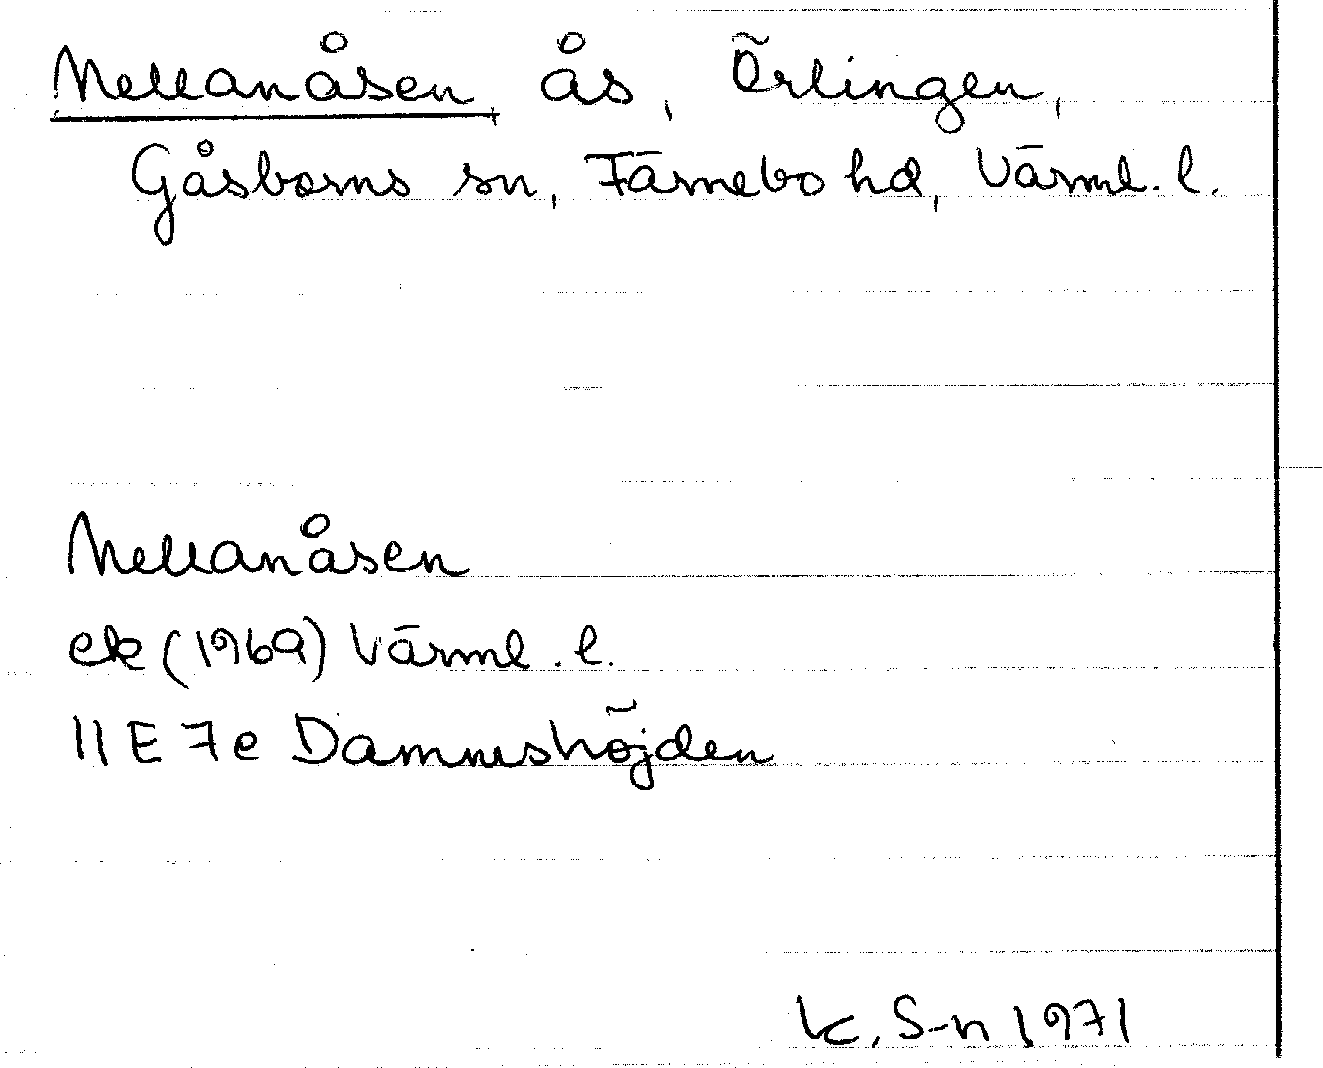 Mellanåsen, ås, Örlingen,
Gåsborns sn, Färnebo hd, Värml. l.
Mellanåsen
ek (1969) Värml. l.
11 E 7e Dammshöjden
K. S-n 1971